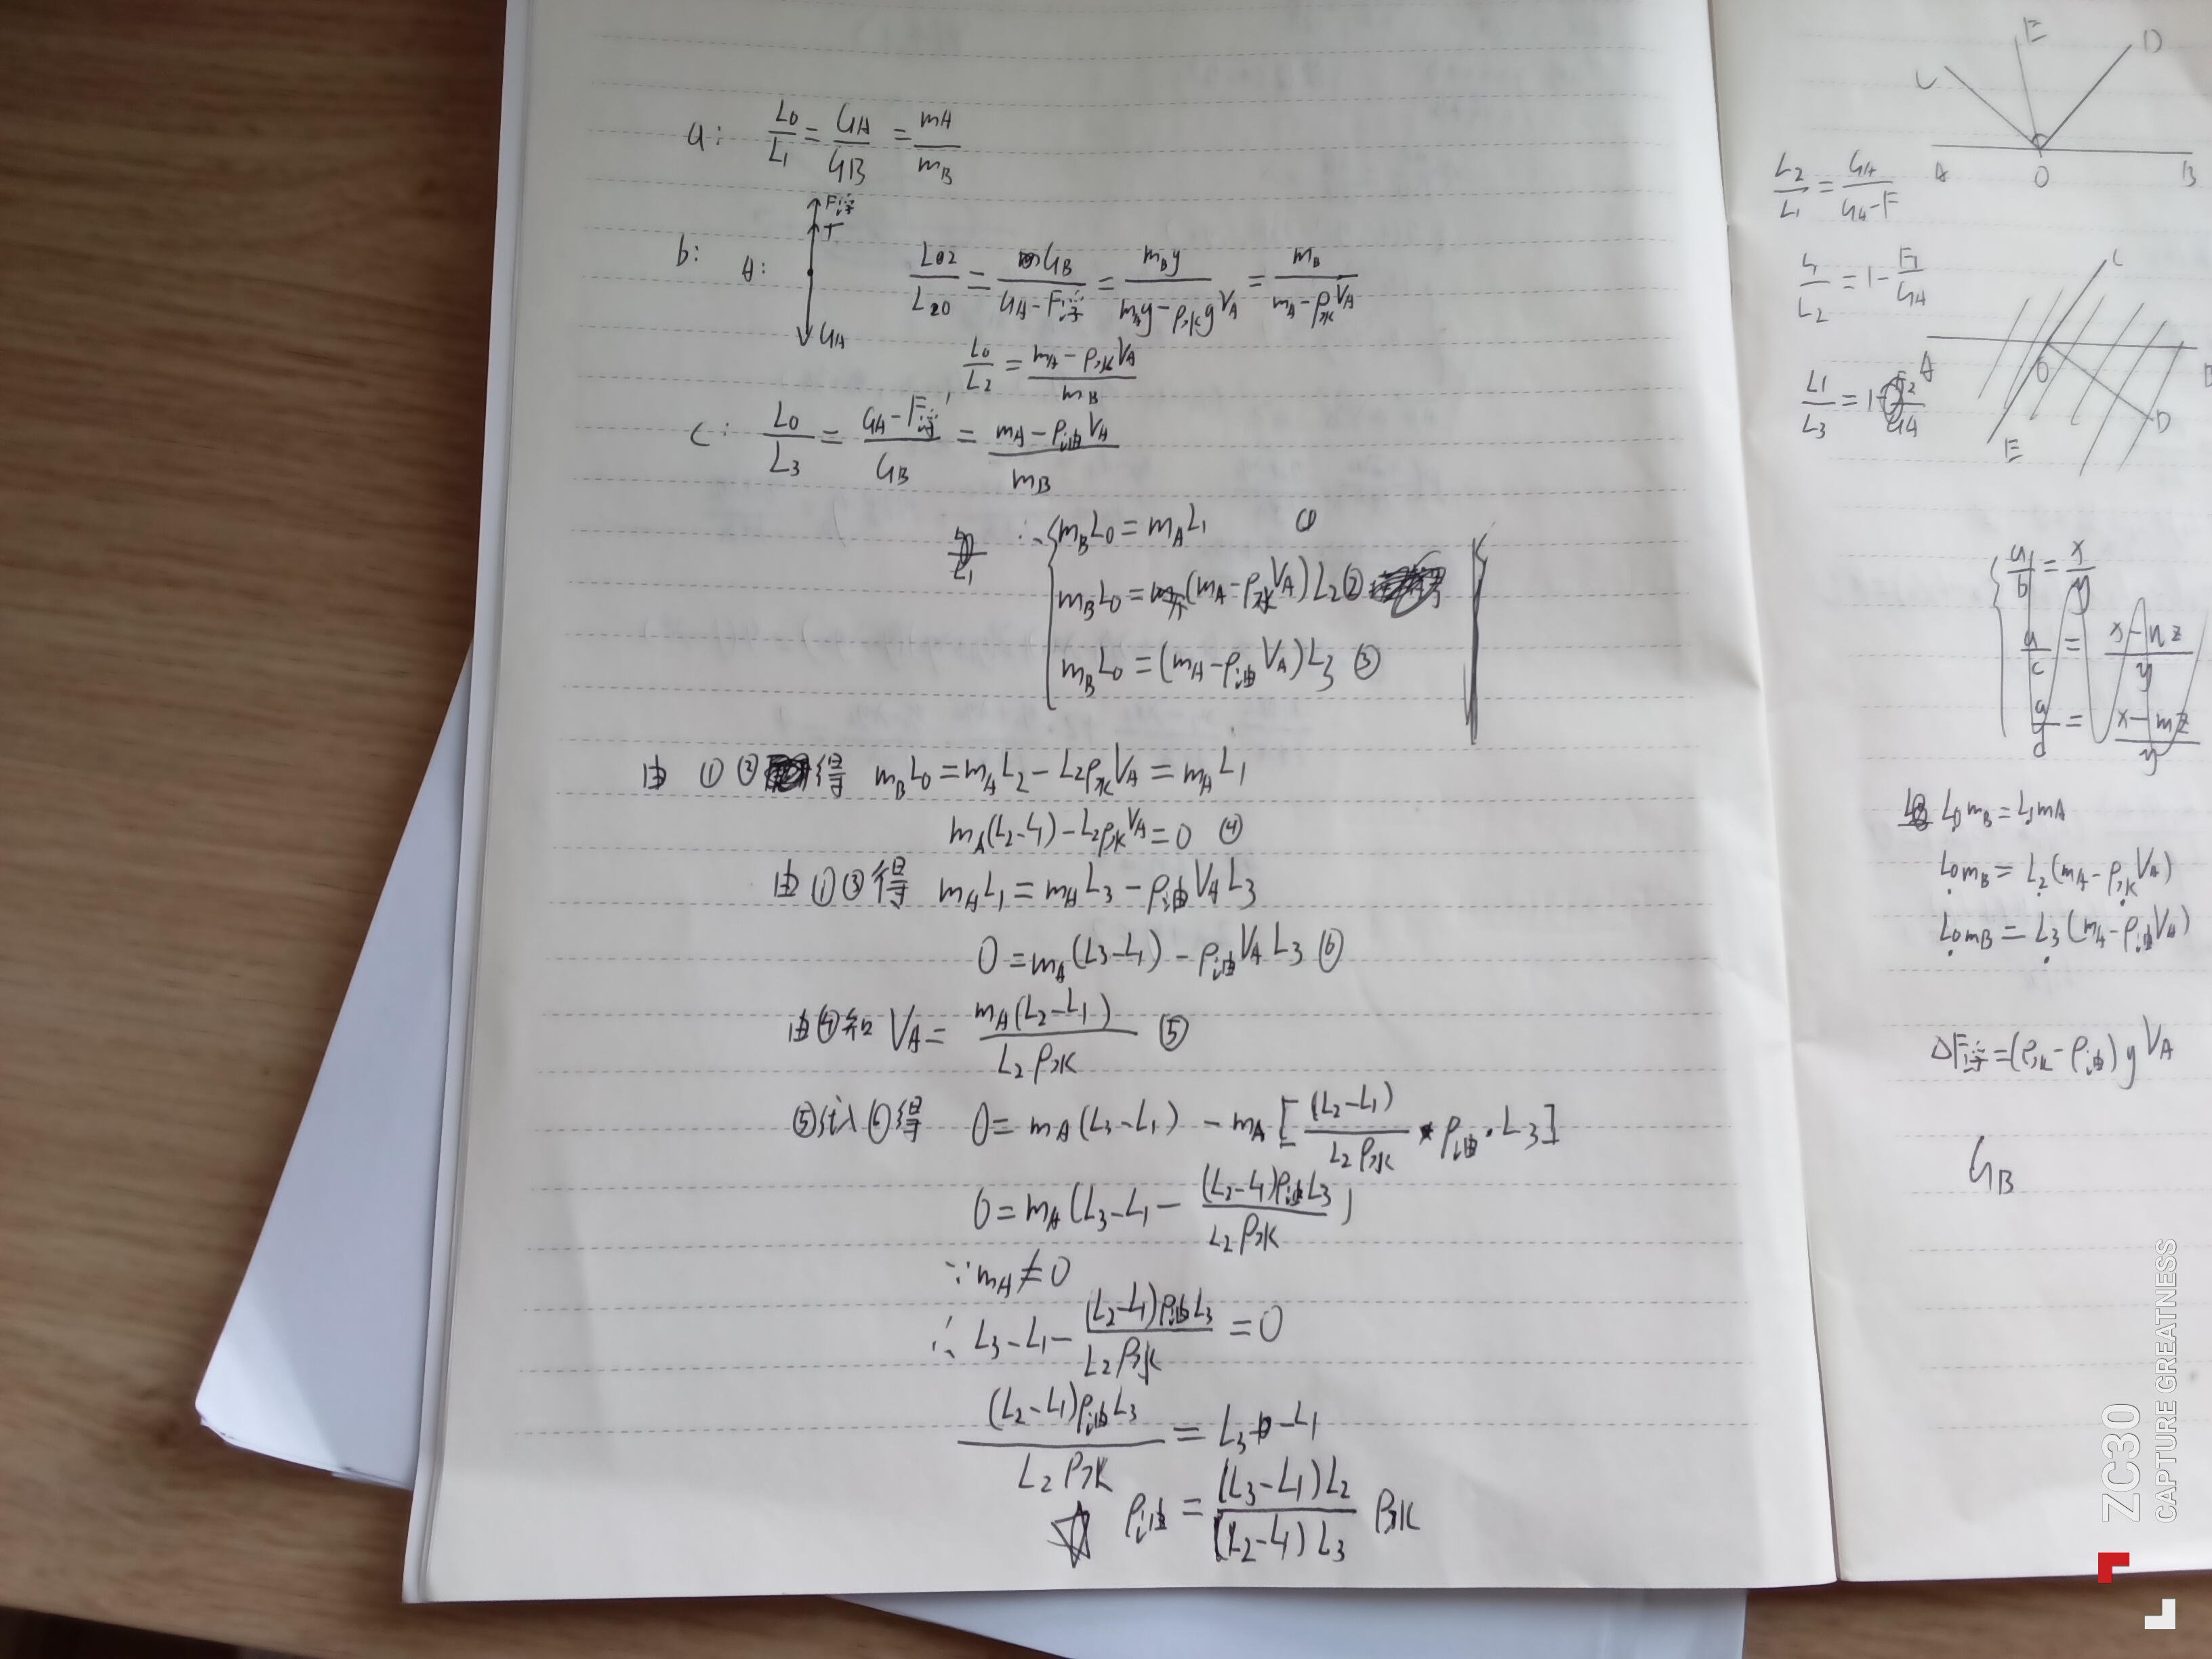 a: L₀/L₁ = G_A/G_B = m_A/m_B
F浮
T
b: A: L₀₂/L₂₀ = G_B/(G_A-F浮) = m_Bg/(m_Ag-ρ水gV_A) = m_B/(m_A-ρ水V_A)
G_A
L₀/L₂ = (m_A-ρ水V_A)/m_B
c: L₀/L₃ = (G_A-F浮')/G_B = (m_A-ρ油V_A)/m_B
∴ { m_BL₀ = m_AL₁ ①
m_BL₀ = (m_A-ρ水V_A)L₂ ②
m_BL₀ = (m_A-ρ油V_A)L₃ ③
由 ①②得 m_BL₀ = m_AL₂-L₂ρ水V_A = m_AL₁
m_A(L₂-L₁)-L₂ρ水V_A = 0 ④
由①③得 m_AL₁ = m_AL₃-ρ油V_AL₃
0 = m_A(L₃-L₁)-ρ油V_AL₃ ⑥
由④知 V_A = m_A(L₂-L₁)/(L₂ρ水) ⑤
⑤代入⑥得 0 = m_A(L₃-L₁)-m_A[(L₂-L₁)/(L₂ρ水)·ρ油·L₃]
0 = m_A(L₃-L₁-(L₂-L₁)ρ油L₃/(L₂ρ水))
∵ m_A≠0
∴ L₃-L₁-(L₂-L₁)ρ油L₃/(L₂ρ水) = 0
(L₂-L₁)ρ油L₃/(L₂ρ水) = L₃-L₁
☆ ρ油 = (L₃-L₁)L₂/((L₂-L₁)L₃) ρ水
C E D
A O B
L₂/L₁ = G_A/(G_A-F)
L₁/L₂ = 1-F₁/G_A
C
A O
D
E
L₁/L₃ = 1-F₂/G_A
{ a/b = x/y
a/c = (x-nz)/y
a/d = (x-mz)/y
L₀m_B = L₁m_A
L₀m_B = L₂(m_A-ρ水V_A)
L₀m_B = L₃(m_A-ρ油V_A)
ΔF浮 = (ρ水-ρ油)gV_A
G_B
ZC30
CAPTURE GREATNESS